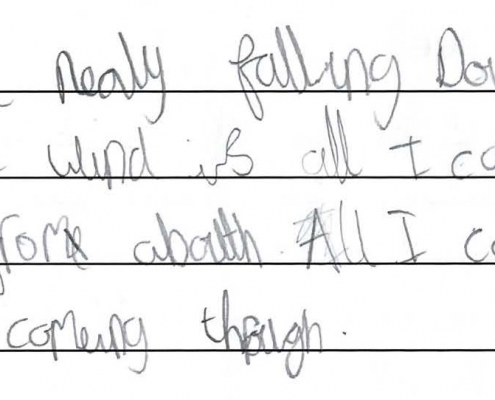 nealy falling Dow
wind is all I co
from abauth All I co
comeing though.